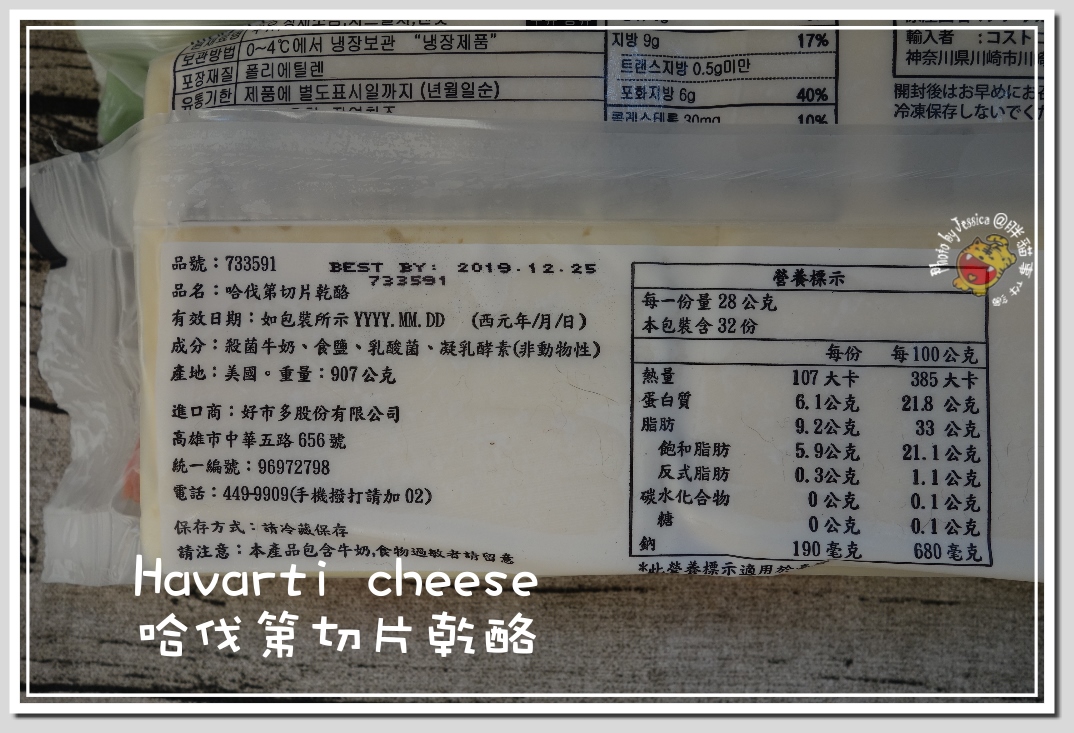 보관방법 0~4℃에서 냉장보관 "냉장제품"
포장재질 폴리에틸렌
유통기한 제품에 별도표시일까지 (년월일순)
지방 9g 17%
트랜스지방 0.5g미만
포화지방 6g 40%
콜레스테롤 30mg 10%
輸入者 :コスト
神奈川県川崎市川
開封後はお早めにお
冷凍保存しないでく
Photo by Jessica @胖貓
品號：733591
BEST BY: 2019.12.25
733591
品名：哈伐第切片乾酪
有效日期：如包裝所示YYYY.MM.DD (西元年/月/日)
成分：殺菌牛奶、食鹽、乳酸菌、凝乳酵素(非動物性)
產地：美國。重量：907公克
進口商：好市多股份有限公司
高雄市中華五路656號
統一編號：96972798
電話：449-9909(手機撥打請加02)
保存方式：請冷藏保存
請注意：本產品包含牛奶,食物過敏者請留意
營養標示
每一份量28公克
本包裝含32份
每份 每100公克
熱量 107大卡 385大卡
蛋白質 6.1公克 21.8公克
脂肪 9.2公克 33公克
飽和脂肪 5.9公克 21.1公克
反式脂肪 0.3公克 1.1公克
碳水化合物 0公克 0.1公克
糖 0公克 0.1公克
鈉 190毫克 680毫克
*此營養標示適用於
Havarti cheese
哈伐第切片乾酪